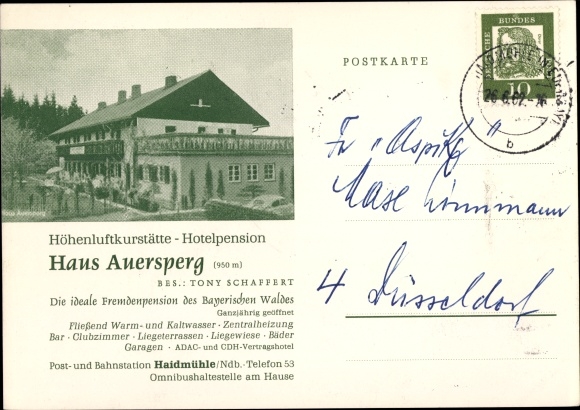 Haus Auersperg
Höhenluftkurstätte - Hotelpension
Haus Auersperg (950 m)
BES.: TONY SCHAFFERT
Die ideale Fremdenpension des Bayerischen Waldes
Ganzjährig geöffnet
Fließend Warm- und Kaltwasser · Zentralheizung
Bar · Clubzimmer · Liegeterrassen · Liegewiese · Bäder
Garagen · ADAC- und CDH-Vertragshotel
Post- und Bahnstation Haidmühle/Ndb. · Telefon 53
Omnibushaltestelle am Hause
POSTKARTE
DEUTSCHE BUNDESPOST
10
26.6.62
b
Fr "Aspika"
4 Düsseldorf